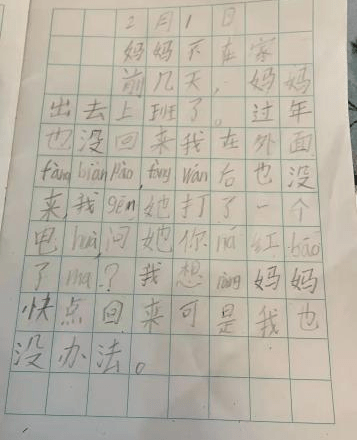 2月1日
妈妈不在家
前几天，妈妈
出去上班了。过年
也没回来我在外面
fàng biān pào, fàng wán 后也没
来，我 gěn 她打了一个
电 huà，问她你 ná 红 bāo
了 ma？我想 ràng 妈妈
快点回来可是我也
没办法。